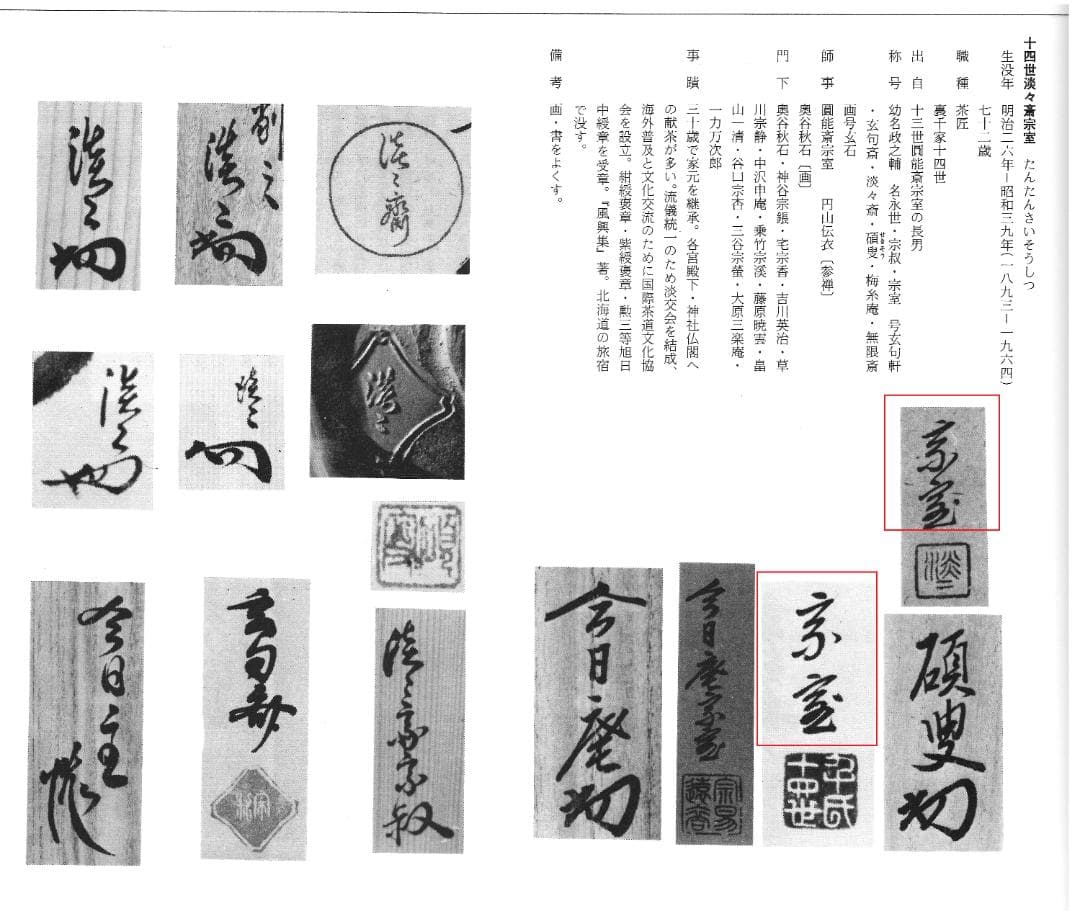 十四世淡々斎宗室　たんたんさいそうしつ
生没年　明治二六年―昭和三九年(一八九三―一九六四)
七十二歳
職種　茶匠
裏千家十四世
出自　十三世圓能斎宗室の長男
称号　幼名政之輔　名永世・宗叔・宗室　号玄句軒
・玄句斎・淡々斎・碩叟・梅糸庵・無限斎
せきそう
画号玄石
師事　圓能斎宗室　円山伝衣〔参禅〕
奥谷秋石〔画〕
門下　奥谷秋石・神谷宗・宅宗香・吉川英治・草
川宗静・中沢申庵・乗竹宗渓・藤原暁雲・畠
山一清・谷口宗杏・三谷宗螢・大原三楽庵・
一力万次郎
事蹟　三十歳で家元を継承。各宮殿下・神社仏閣へ
の献茶が多い。流儀統一のため淡交会を結成、
海外普及と文化交流のために国際茶道文化協
会を設立。紺綬褒章・紫綬褒章・勲三等旭日
中綬章を受章。『風興集』著。北海道の旅宿
で没す。
備考　画・書をよくす。
宗室
淡々
碩叟
宗室
千氏十四世
今日庵宗室
宗易遠孫
今日庵
碩叟
淡々斎宗叔
淡々斎
淡々
淡々
淡々
淡々
淡々
玄句斎
今日主